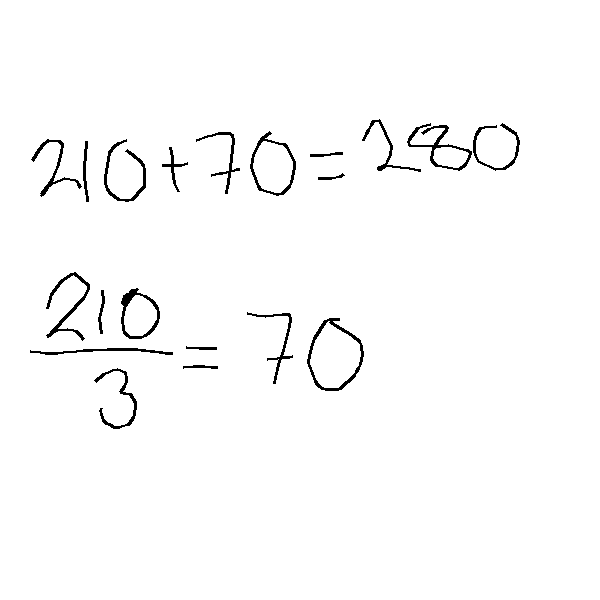 210+70=280
210/3=70